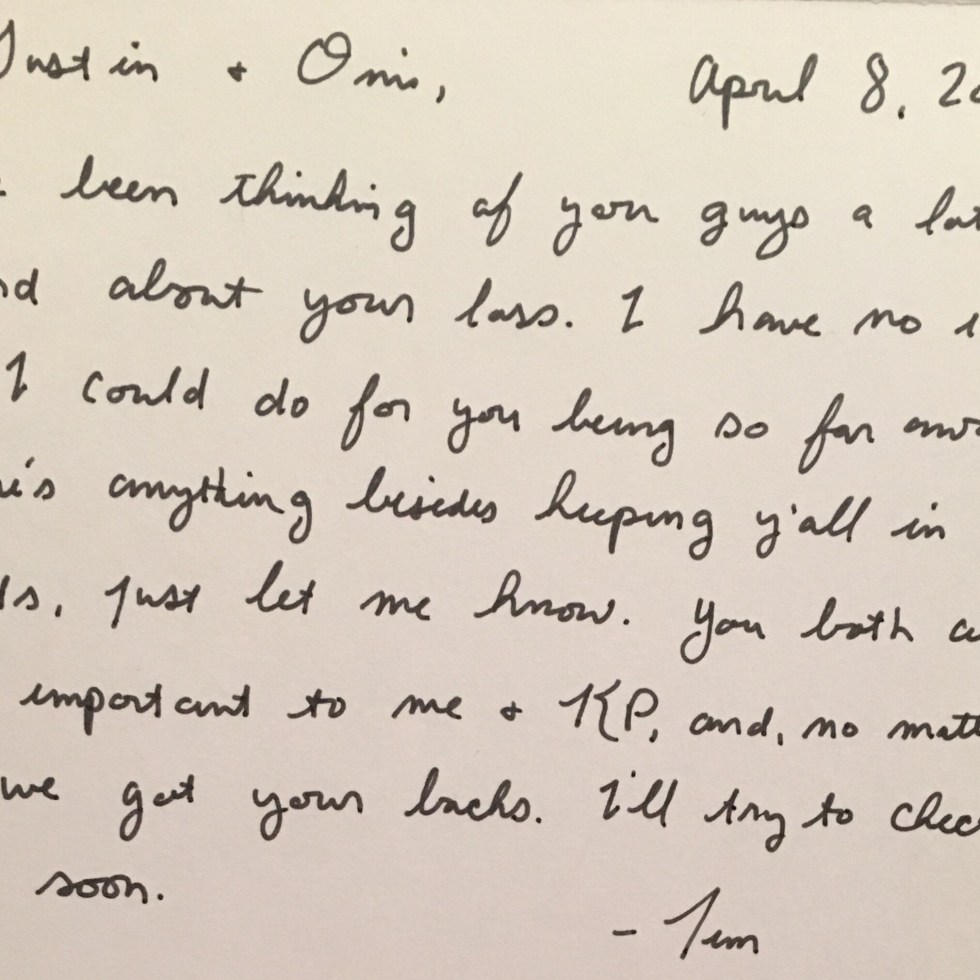 Justin + Omi, April 8, 20
been thinking of you guys a lot
about your loss. I have no i
I could do for you being so far awa
re's anything besides keeping y'all in
ts, just let me know. You both a
important to me + KP, and, no matt
we got your backs. I'll try to chec
soon.
- Tim